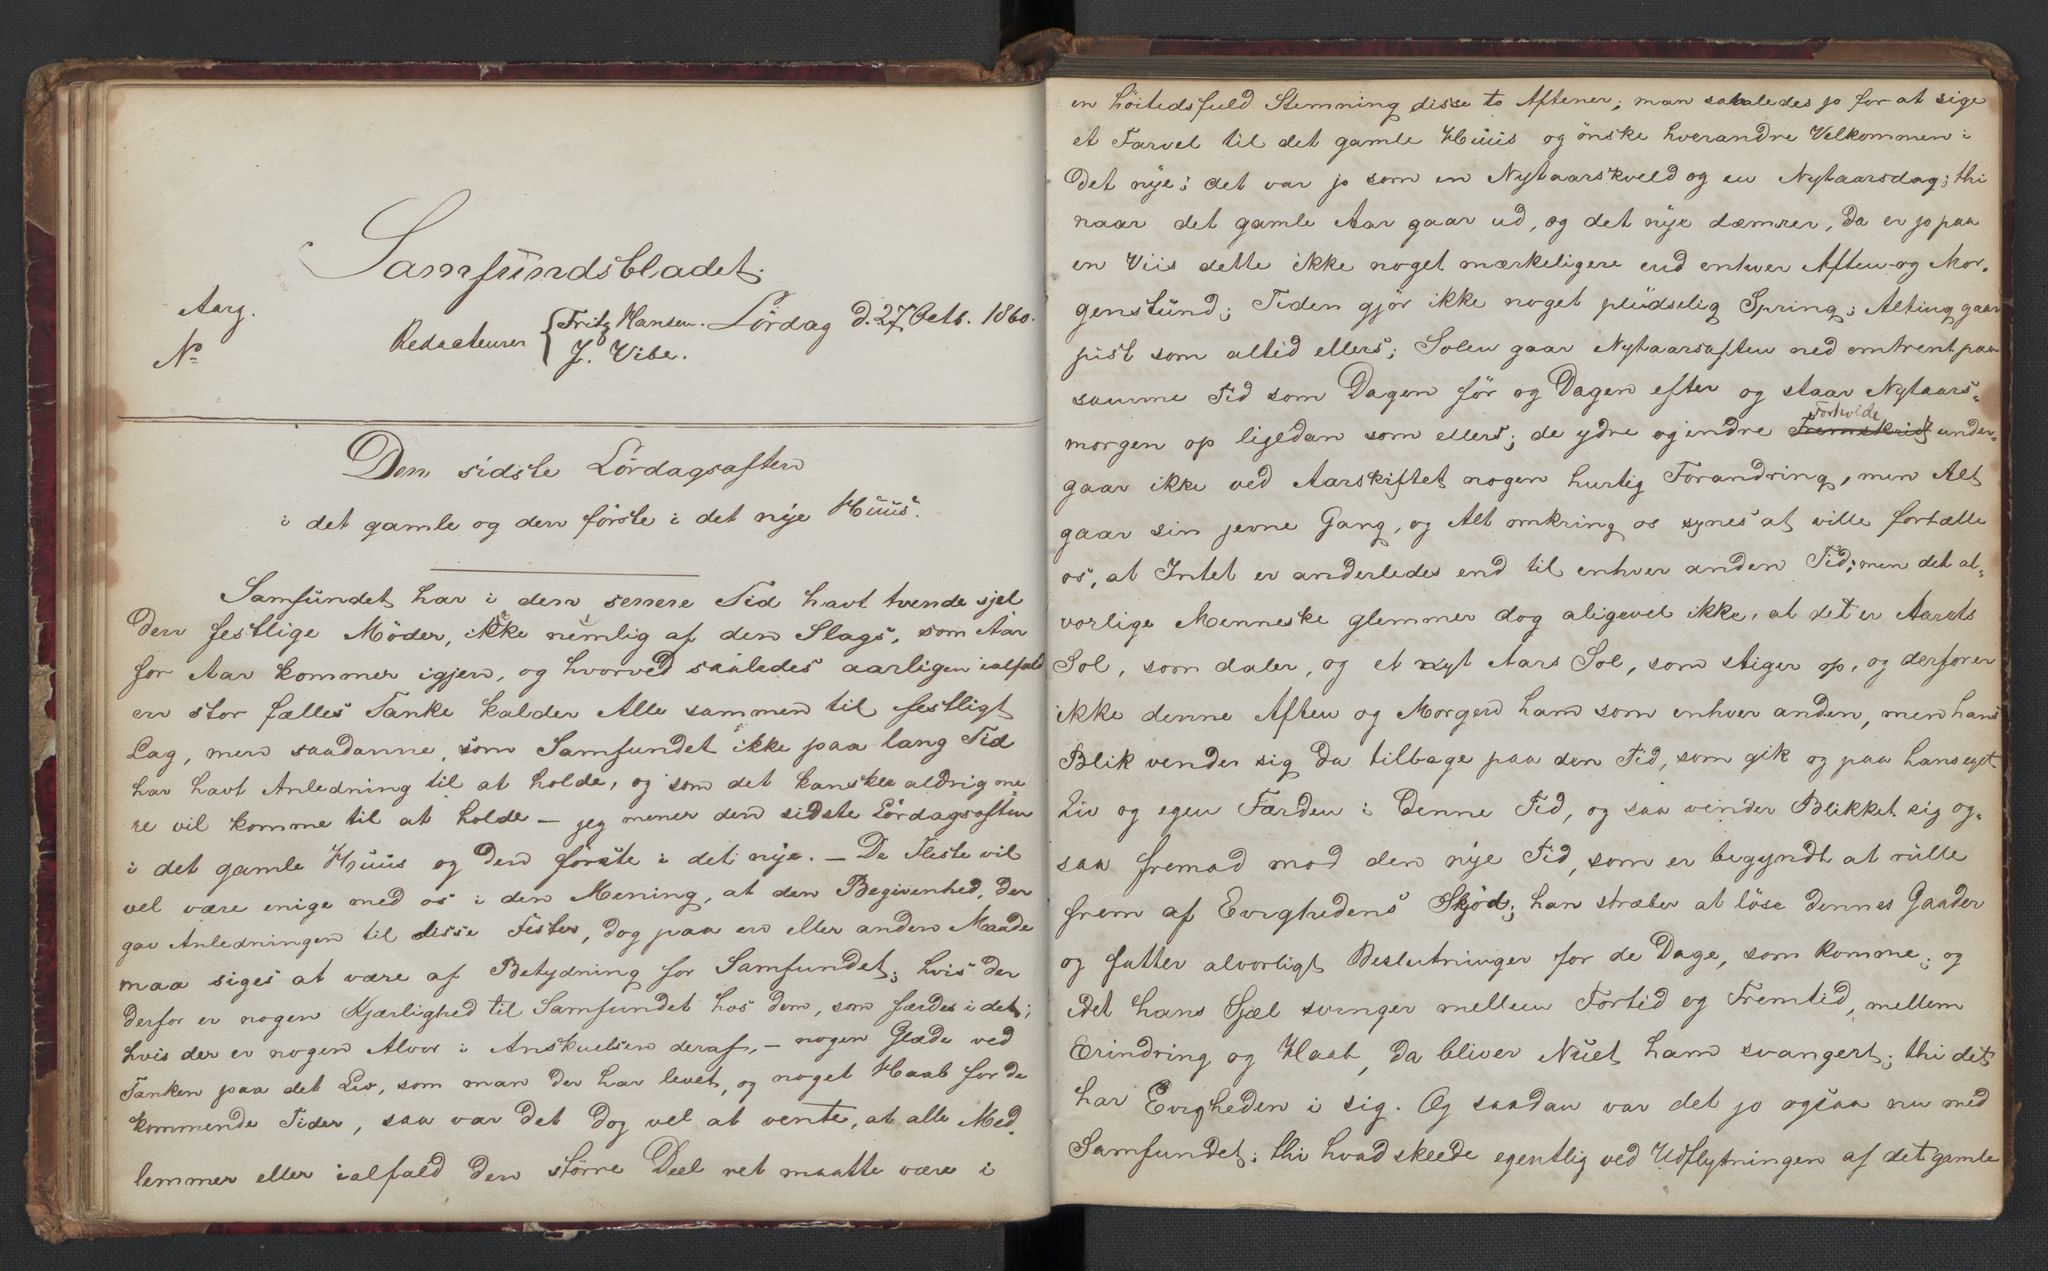 Samfundsbladet.
Aarg.
No
Redacteurer { Fritz Hansen. Lördag d. 27 Octb. 1860.
J. Vibe.
Den sidste Lördagsaften
i det gamle og den förste i det nye Huus.
Samfundet har i den senere Tid havt tvende sjel
den festlige Möder, ikke nemlig af den Slags, som Aar
for Aar kommer igjen, og hvorved saaledes aarligen ialfald
en stor fælles Tanke kalder Alle sammen til festligt
Lag, men saadanne, som Samfundet ikke paa lang Tid
har havt Anledning til at holde, og som det kanskee aldrig me
re vil komme til at holde – jeg mener den sidste Lördagsaften
i det gamle Huus og den förste i det nye. – De Fleste vil
vel være enige med os i den Mening, at den Begivenhed, der
gav Anledningen til disse Fester, dog paa en eller anden Maade
maa siges at være af Betydning for Samfundet; hvis der
derfor er nogen Kjærlighed til Samfundet hos dem, som færdes i det;
hvis der er nogen Alvor i Anskuelsen deraf, – nogen Glæde ved
Tanken paa det Liv, som man der har levet, og noget Haab for de
kommende Tider, saa var det dog vel at vente, at alle Med
lemmer eller ialfald den större Deel ret maatte være i
en höitidsfuld Stemning disse to Aftener; man samledes jo for at sige
et Farvel til det gamle Huus og önske hverandre Velkommen i
det nye; det var jo som en Nytaarskveld og en Nytaarsdag; thi
naar det gamle Aar gaar ud, og det nye dæmrer, da er jo paa
en Viis dette ikke noget mærkeligere end enhver Aften- og Mor-
genstund; Tiden gjör ikke noget pludselig Spring; Alting gaar
just som altid ellers; Solen gaar Nytaarsaften ned omtrent paa
samme Tid som Dagen för og Dagen efter og staar Nytaars-
morgen op ligedan som ellers; de ydre og indre Fremskridt Forholde under-
gaar ikke ved Aarskiftet nogen hurtig Forandring, men Alt
gaar sin jevne Gang, og Alt omkring os synes at ville fortælle
os, at Intet er anderledes end til enhver anden Tid; men det al-
vorlige Menneske glemmer dog aligevel ikke, at det er Aarets
Sol, som daler, og et nyt Aars Sol, som stiger op, og derfor er
ikke denne Aften og Morgen ham som enhver anden, men hans
Blik vender sig da tilbage paa den Tid, som gik og paa hans eget
Liv og egen Færden i denne Tid, og saa vender Blikket sig og-
saa fremad mod den nye Tid, som er begyndt at rulle
frem af Evighedens Skjöd; han stræber at löse dennes Gaader
og fatter alvorligt Beslutninger for de Dage, som komme; og
idet hans Sjæl svinger mellem Fortid og Fremtid, mellem
Erindring og Haab, da bliver Nuet ham svangert; thi det
har Evigheden i sig. Og saadan var det jo ogsaa nu med
Samfundet; thi hvad skeede egentlig ved Udflytningen af det gamle